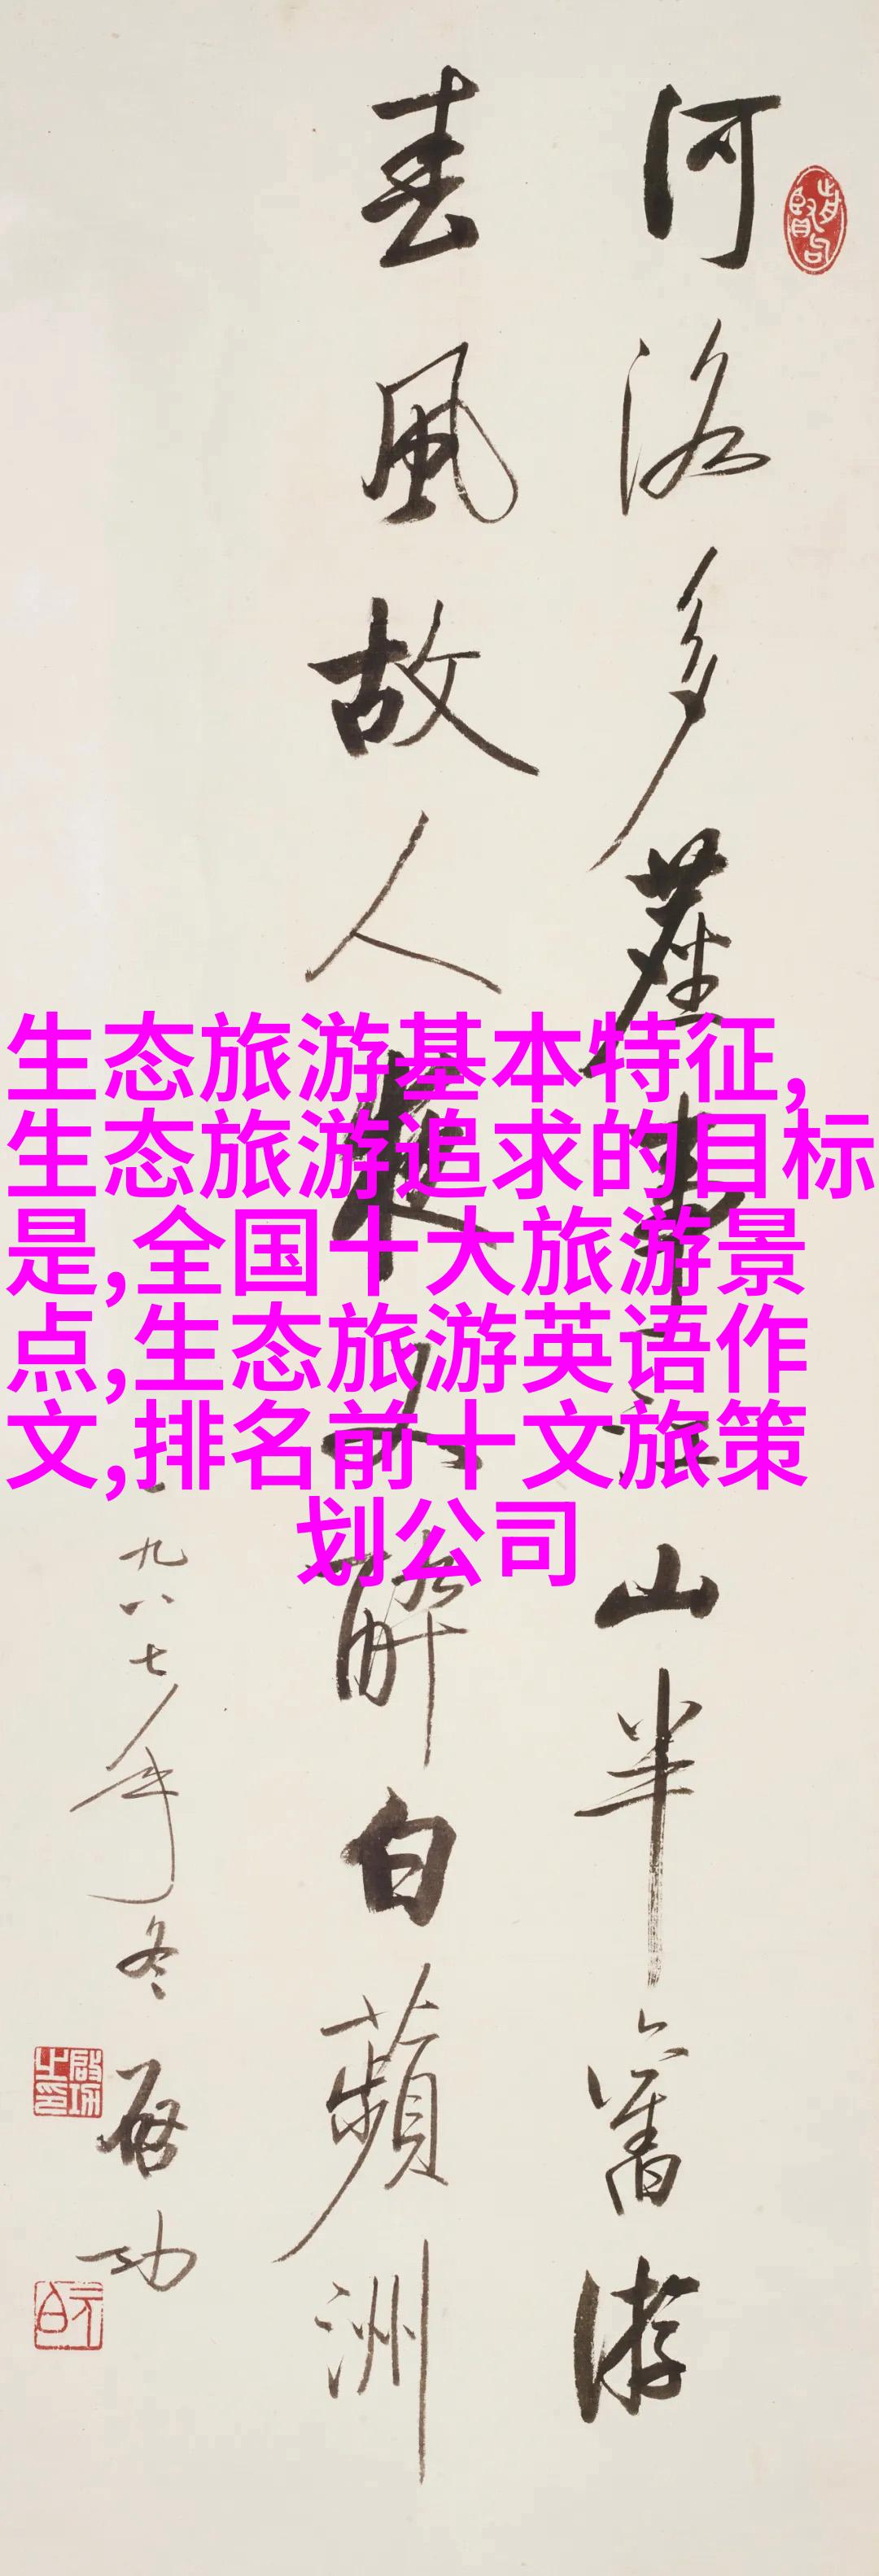 河洛多塵事江山半舊游
春風故人夜又醉白蘋洲
一九八七年冬 启功
生态旅游基本特征,
生态旅游追求的目标
是,全国十大旅游景
点,生态旅游英语作
文,排名前十文旅策
划公司